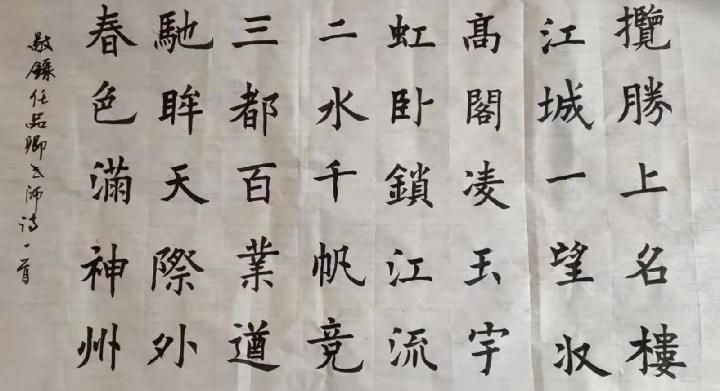 攬勝上名樓
江城一望収
髙閣凌玉宇
虹卧鎖江流
二水千帆竞
三都百業遒
馳眸天際外
春色滿神州
敬錄任品卿吾师诗一首